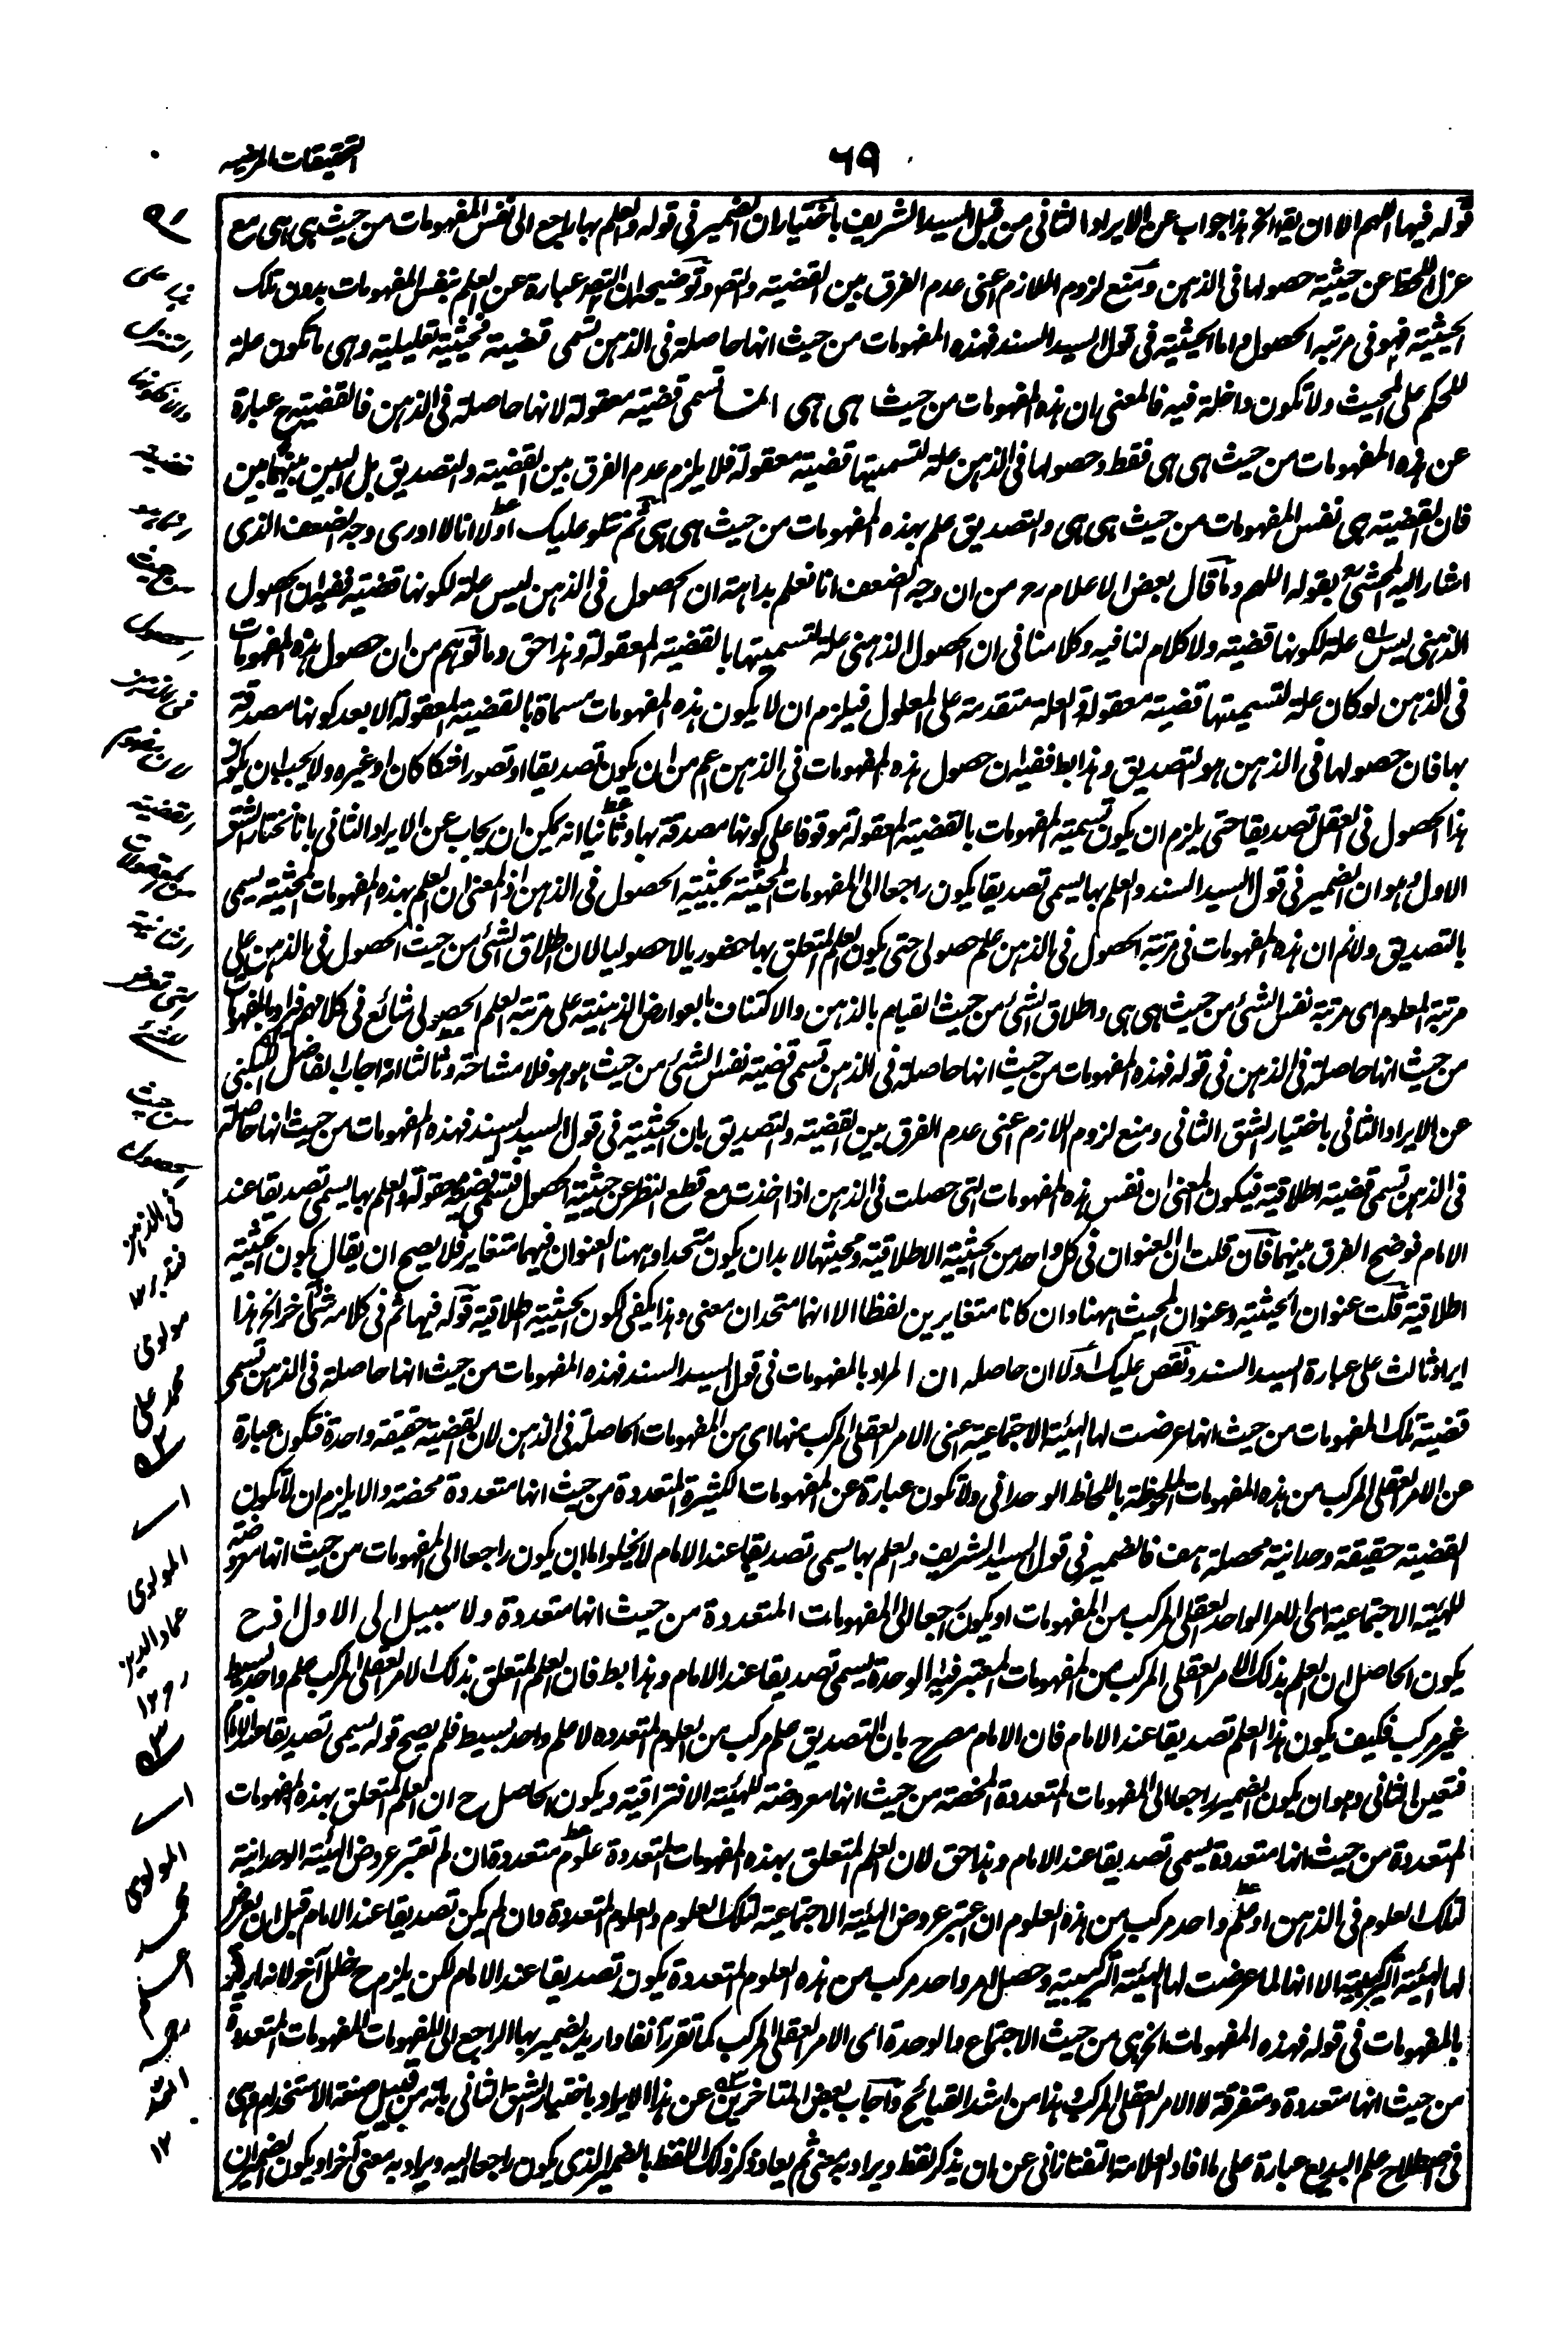 التحقيقات المرضيه
٦٩
قوله فيها اللهم الا ان يقال الخ هذا جواب عن الايراد الثانى من قبل السيد الشريف باختيار ان الضمير فى قوله والعلم بها راجع الى نفس المفهومات من حيث هى هى مع
عزل اللحاظ عن حيثية حصولها فى الذهن ومنع لزوم اللازم اعنى عدم الفرق بين القضية والتصديق وتوضيحه ان التصديق عبارة عن العلم بنفس المفهومات بدون تلك
الحيثية فهو فى مرتبة الحصول واما الحيثية فى قول السيد السند فهذه المفهومات من حيث انها حاصلة فى الذهن تسمى قضية فحيثية تعليلية وهى ما تكون علة
للحكم على المحيث ولا تكون داخلة فيه فالمعنى ان هذه المفهومات من حيث هى هى انما تسمى قضية معقولة لانها حاصلة فى الذهن فالقضية ح عبارة
عن هذه المفهومات من حيث هى هى فقط وحصولها فى الذهن علة لتسميتها قضية معقولة فلا يلزم عدم الفرق بين القضية والتصديق بل البين بينهما بين
فان القضية هى نفس المفهومات من حيث هى هى والتصديق علم بهذه المفهومات من حيث هى هى ثم نتلو عليك اولا انا لا ادرى وجه الضعف الذى
اشار اليه المحشى بقوله اللهم وما قال بعض الاعلام رح من ان وجه الضعف انا نعلم بداهة ان الحصول فى الذهن ليس علة لكونها قضية ففيه ان الحصول
الذهنى ليس علة لكونها قضية ولا كلام لنا فيه وكلامنا فى ان الحصول الذهنى علة لتسميتها بالقضية المعقولة وهذا حق وما توهم من ان حصول هذه المفهومات
فى الذهن لو كان علة لتسميتها قضية معقولة والعلة متقدمة على المعلول فيلزم ان لا يكون هذه المفهومات مسماة بالقضية المعقولة الا بعد كونها مصدقة
بها فان حصولها فى الذهن هو التصديق وهذا بط ففيه ان حصول هذه المفهومات فى الذهن اعم من ان يكون تصديقا او تصورا شكا كان او غيره ولا يجب ان يكون
هذا الحصول فى العقل تصديقا حتى يلزم ان يكون تسمية المفهومات بالقضية المعقولة موقوفا على كونها مصدقة بها وثانيا انه يمكن ان يجاب عن الايراد الثانى بانا نختار الشق
الاول وهو ان الضمير فى قول السيد السند والعلم بها يسمى تصديقا يكون راجعا الى المفهومات المحيثية بحيثية الحصول فى الذهن اذ المعنى ان العلم بهذه المفهومات المحيثية يسمى
بالتصديق ولا نم ان هذه المفهومات فى مرتبة الحصول فى الذهن علم حصولى حتى يكون العلم المتعلق بها حضوريا لا حصوليا لان اطلاق الشئ من حيث الحصول فى الذهن على
مرتبة المعلوم اى مرتبة نفس الشئ من حيث هى هى واطلاق الشئ من حيث القيام بالذهن والاكتناف بالعوارض الذهنية على مرتبة العلم الحصولى شائع فى كلامهم فيراد بالمفهومات
من حيث انها حاصلة فى الذهن فى قوله فهذه المفهومات من حيث انها حاصلة فى الذهن تسمى قضية نفس الشئ من حيث هو هو فلا مشاحة وثالثا انه اجاب الفاضل اللبكنى
عن الايراد الثانى باختيار الشق الثانى ومنع لزوم اللازم اعنى عدم الفرق بين القضية والتصديق بان الحيثية فى قول السيد السند فهذه المفهومات من حيث انها حاصلة
فى الذهن تسمى قضية اطلاقية فيكون المعنى ان نفس هذه المفهومات التى حصلت فى الذهن اذا اخذت مع قطع النظر عن حيثية الحصول فتسمى قضية معقولة والعلم بها يسمى تصديقا عند
الامام فوضح الفرق بينهما فان قلت ان العنوان فى كل واحد من الحيثية الاطلاقية ومحيثها لا بد ان يكون متحدا وههنا العنوان فيهما متغاير فلا يصح ان يقال يكون الحيثية
اطلاقية قلت عنوان الحيثية وعنوان المحيث ههنا وان كانا متغايرين لفظا الا انهما متحدان معنى وهذا يكفى لكون الحيثية اطلاقية قوله فيها ثم فى كلامه شئ آخر الخ هذا
ايراد ثالث على عبارة السيد السند ونقص عليك اولا ان حاصله ان المراد بالمفهومات فى قول السيد السند فهذه المفهومات من حيث انها حاصلة فى الذهن تسمى
قضية تلك المفهومات من حيث انها عرضت لها الهيئة الاجتماعية اعنى الامر العقلى المركب منها اى من المفهومات الحاصلة فى الذهن لان القضية حقيقة واحدة فتكون عبارة
عن الامر العقلى المركب من هذه المفهومات الملحوظة باللحاظ الوحدانى ولا تكون عبارة عن المفهومات الكثيرة المتعددة من حيث انها متعددة محضة والا يلزم ان لا تكون
القضية حقيقة وحدانية محصلة هف فالضمير فى قول السيد الشريف والعلم بها يسمى تصديقا عند الامام لا يخلو اما ان يكون راجعا الى المفهومات من حيث انها معروضة
للهيئة الاجتماعية اى الامر الواحد العقلى المركب من المفهومات او يكون راجعا الى المفهومات المتعددة من حيث انها متعددة ولا سبيل الى الاول اذ ح
يكون الحاصل ان العلم بذلك الامر العقلى المركب من المفهومات المعتبر فيه الوحدة يسمى تصديقا عند الامام وهذا بط فان العلم المتعلق بذلك الامر العقلى المركب علم واحد بسيط
غير مركب فكيف يكون هذا العلم تصديقا عند الامام فان الامام مصرح بان التصديق علم مركب من العلوم المتعدده لا علم واحد بسيط فلم يصح قوله يسمى تصديقا عند الامام
فتعين الثانى وهو ان يكون الضمير راجعا الى المفهومات المتعددة المحضة من حيث انها معروضة للهيئة الافتراقية ويكون الحاصل ح ان العلم المتعلق بهذه المفهومات
المتعددة من حيث انها متعددة يسمى تصديقا عند الامام وهذا حق لان العلم المتعلق بهذه المفهومات المتعددة علوم متعددة ان لم تعتبر عروض الهيئة الوحدانية
لتلك العلوم فى الذهن او علم واحد مركب من هذه العلوم ان اعتبر عروض الهيئة الاجتماعية لتلك العلوم والعلوم المتعددة وان لم يكن تصديقا عند الامام قبل ان يعرض
لها الهيئة التركيبية الا انها لما عرضت لها الهيئة التركيبية وحصل امر واحد مركب من هذه العلوم المتعددة يكون تصديقا عند الامام لكن يلزم ح خلل آخر لانه اريد
بالمفهومات فى قوله فهذه المفهومات الخ هى من حيث الاجتماع والوحدة اى الامر العقلى المركب كما تقرر آنفا واريد بضمير بها الراجع الى المفهومات المفهومات المتعددة
من حيث انها متعددة ومتفرقة لا الامر العقلى المركب وهذا من اشد القبائح واجاب بعض المتاخرين عن هذا الايراد باختيار الشق الثانى بانه من قبيل صنعة الاستخدام وهى
فى اصطلاح علم البديع عبارة على ما افاد العلامة التفتازانى عن ان يذكر لفظ ويراد به معنى ثم يعاد ذكر ذلك اللفظ بالضمير الذى يكون راجعا اليه ويراد به معنى آخر او يكون الضميران
قضية
من حيث
القضية
من حيث
الحصول
فى الذهن
مولوى
محمد على
المولوى
عماد الدين
المولوى
محمد
١٢